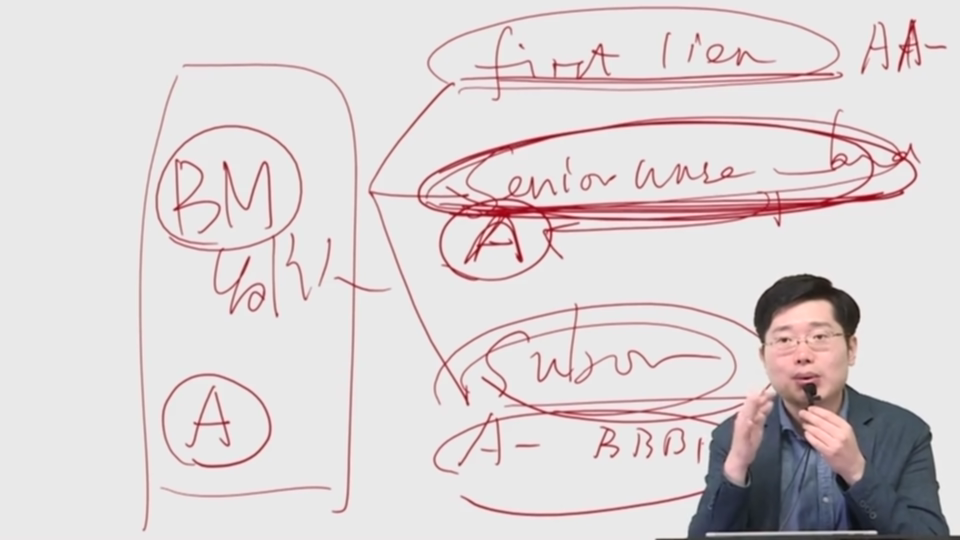 first lien AA-
BM
Senior unse
A
A
Subor
A- BBB+